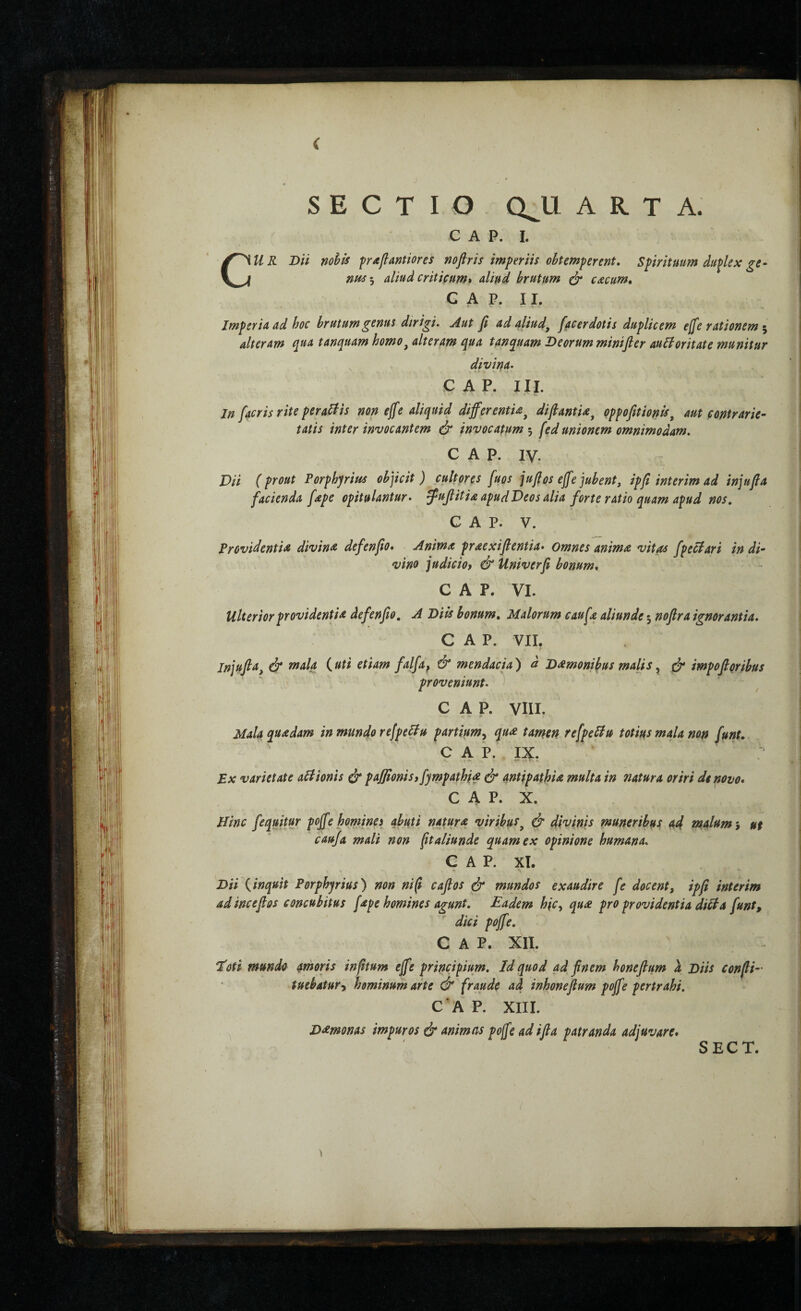 SECTIO QUARTA.
CAP. I.
CUR Dii nobis præſtantiores noſtris imperiis obtemperent. Spirituum duplex ge-
nus; aliud criticum, aliud brutum & cæcum.
CAP. II.
Imperia ad hoc brutum genus dirigi. Aut ſi ad aliud, ſacerdotis duplicem eſſe rationem;
alteram qua tanquam homo, alteram qua tanquam Deorum miniſter auctoritate munitur
divina.
CAP. III.
In ſacris rite peractis non eſſe aliquid differentiæ, diſtantiæ, oppoſitionis, aut contrarie-
tatis inter invocantem & invocatum; ſed unionem omnimodam.
CAP. IV.
Dii (prout Porphyrius objicit) cultores ſuos juſtos eſſe jubent, ipſi interim ad injuſta
facienda ſæpe opitulantur. Juſtitiæ apud Deos alia forte ratio quam apud nos.
CAP. V.
Providentiæ divinæ defenſio. Animæ præexiſtentia. Omnes animæ vitas ſpectari in di-
vino judicio, & Univerſi bonum.
CAP. VI.
Ulterior providentiæ defenſio. A Diis bonum. Malorum cauſæ aliunde; noſtra ignorantia.
CAP. VII.
Injuſta, & mala (uti etiam falſa, & mendacia) à Dæmonibus malis, & impoſtoribus
proveniunt.
CAP. VIII.
Mala quædam in mundo reſpectu partium, quæ tamen reſpectu totius mala non ſunt.
CAP. IX.
Ex varietate actionis & paſſionis, ſympathiæ & antipathiæ multa in natura oriri de novo.
CAP. X.
Hinc ſequitur poſſe homines abuti naturæ viribus, & divinis muneribus ad malum; ut
cauſa mali non ſit aliunde quam ex opinione humana.
CAP. XI.
Dii (inquit Porphyrius) non niſi caſtos & mundos exaudire ſe docent, ipſi interim
ad inceſtos concubitus ſæpe homines agunt. Eadem hic, quæ pro providentia dicta ſunt,
dici poſſe.
CAP. XII.
Toti mundo amoris inſitum eſſe principium. Id quod ad finem honeſtum à Diis conſti-
tuebatur, hominum arte & fraude ad inhoneſtum poſſe pertrahi.
CAP. XIII.
Dæmonas impuros & animas poſſe ad iſta patranda adjuvare.
SECT.